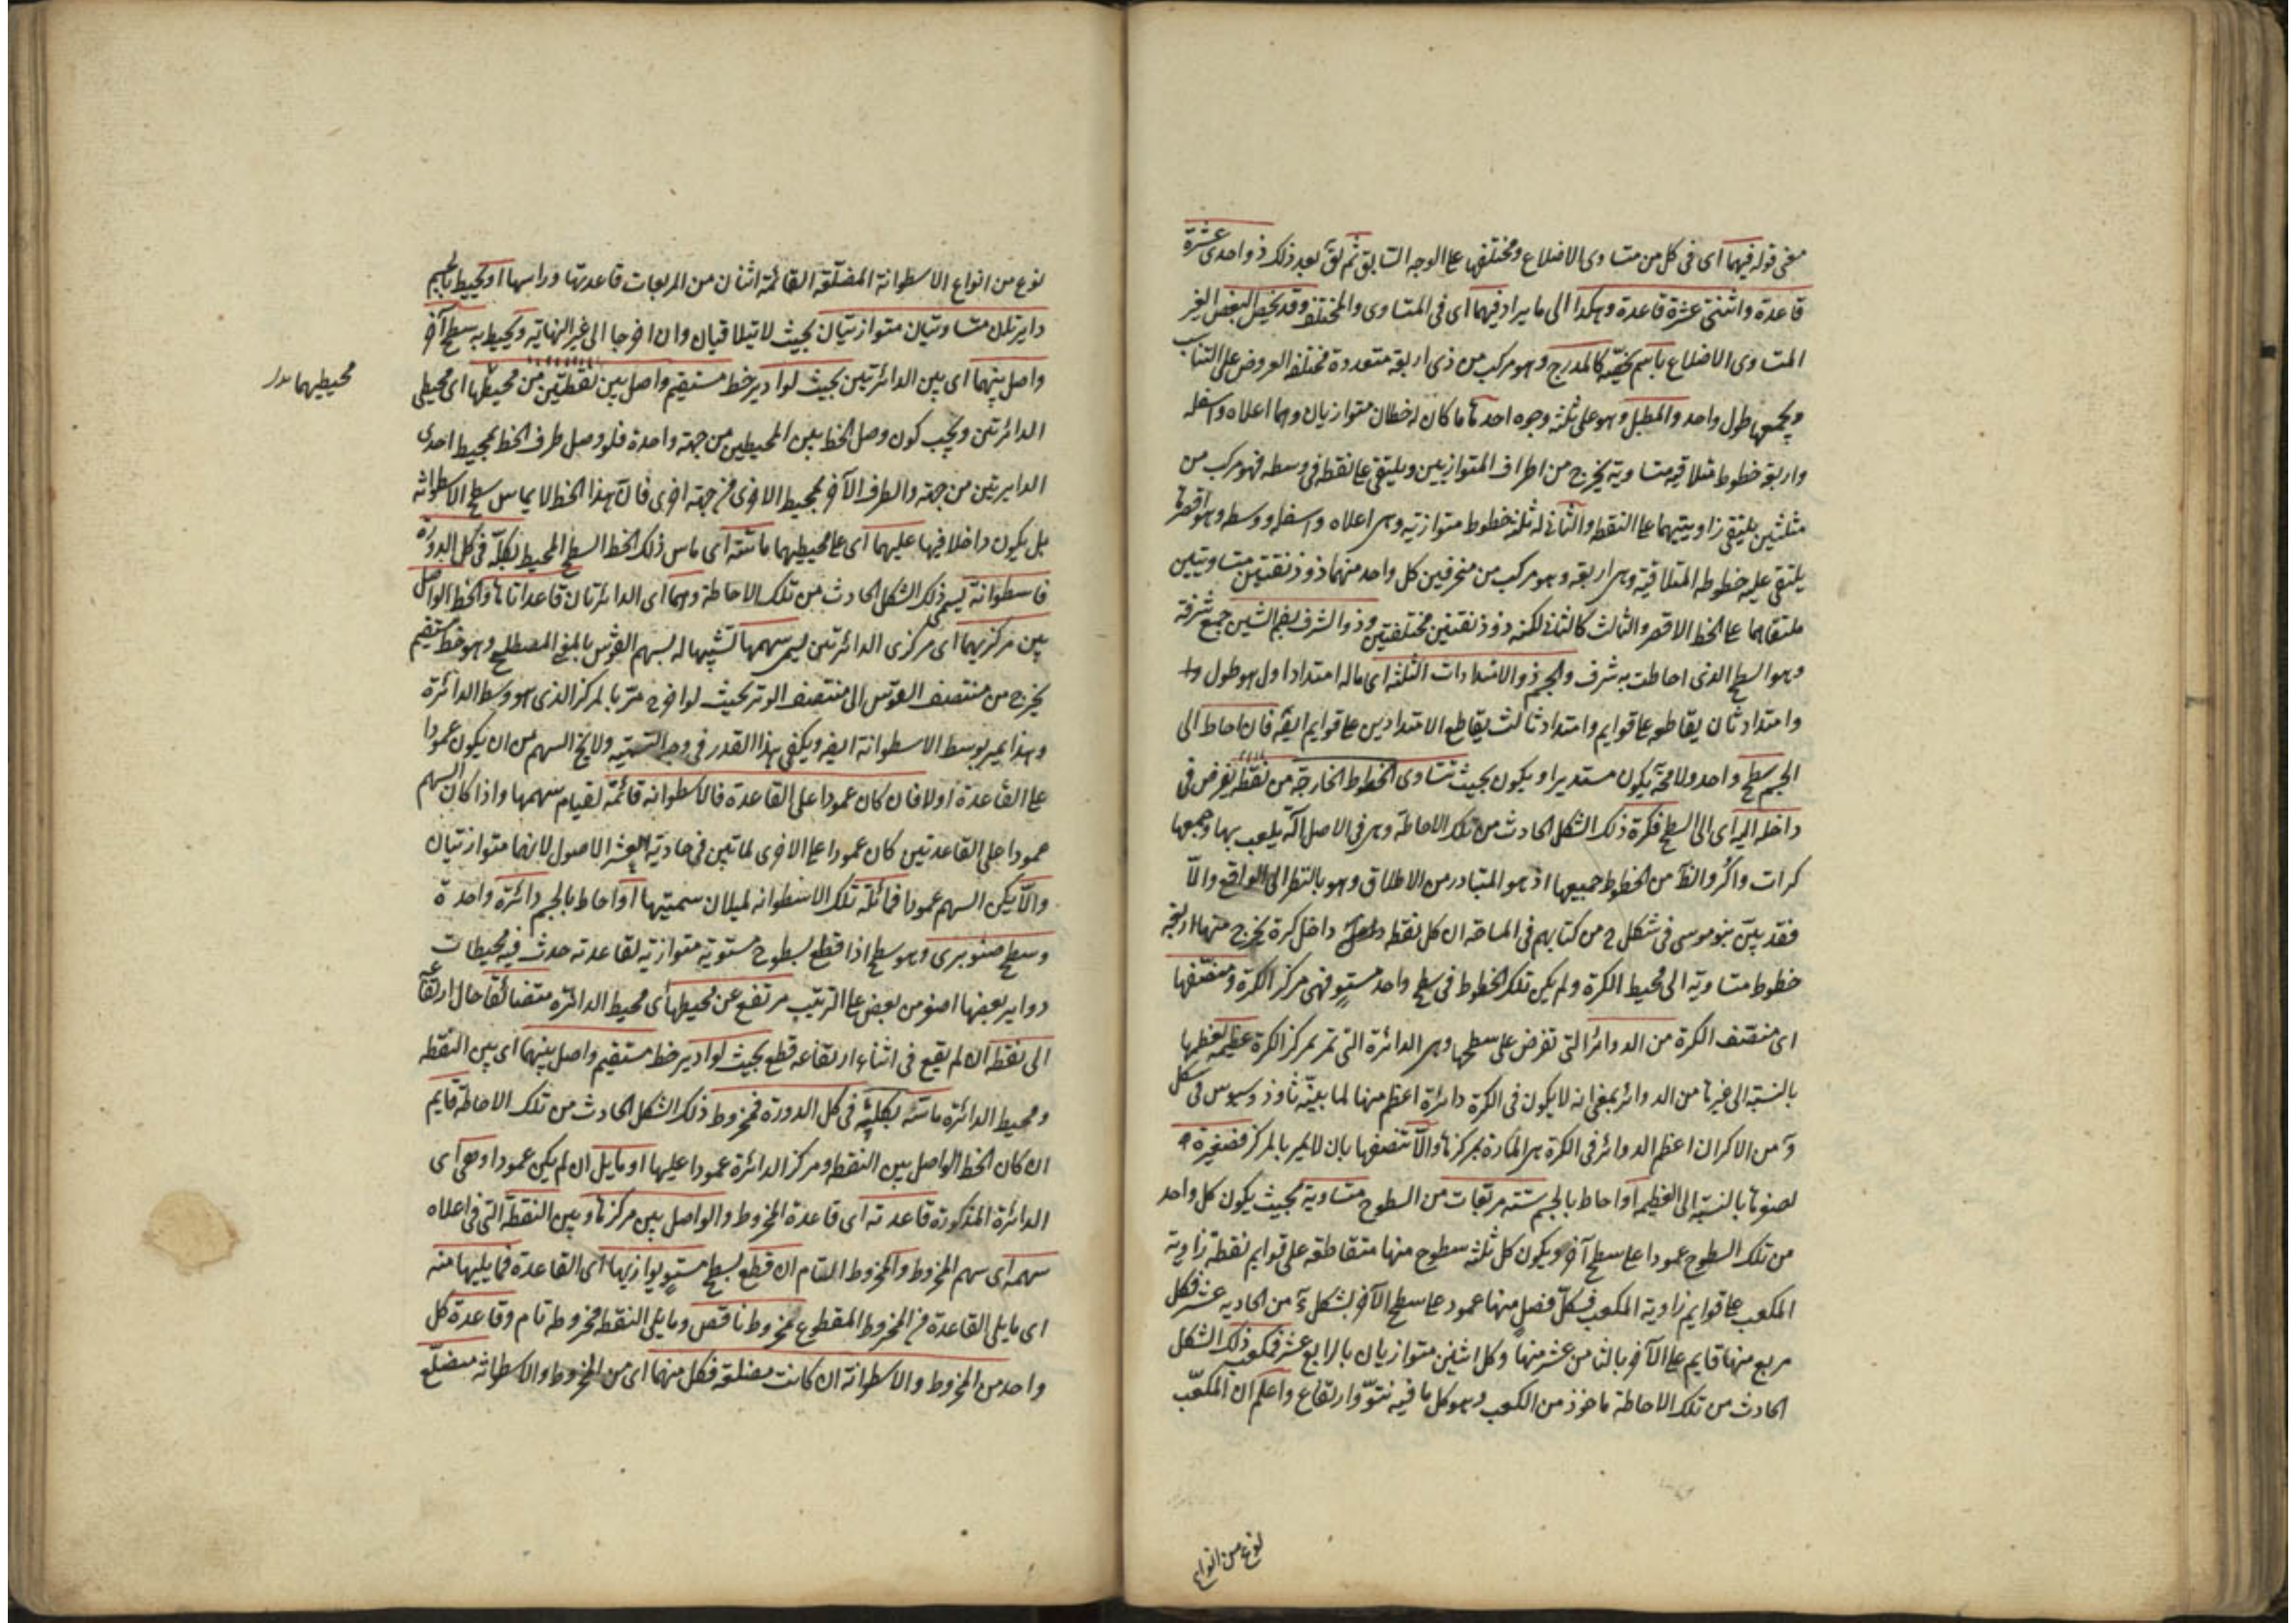 معنى قوله فيهما اى فى كل من متساوى الاضلاع ومختلفها على الوجه السابق ثم يق بعد ذلك ذو احدى عشرة
قاعدة واثنتى عشرة قاعدة وهكذا الى ما يراد فيهما اى فى المتساوى والمختلف وقد يخص البعض الغير
المتساوى الاضلاع باسم كالمدرج وهو مركب من ذى اربعة متعددة مختلفة العروض على التناسب
ويجمعها طول واحد والمطبل وهو على ثلثة وجوه احدها ما كان له خطان متوازيان وهما اعلاه واسفله
واربعة خطوط متلاقية متساوية يخرج من اطراف المتوازيين ويلتقى على نقطة فى وسطه فهو مركب من
مثلثين يلتقى زاويتيهما على النقطة والثانى له ثلثة خطوط متوازية وهى اعلاه واسفله ووسطه وهو اقصرها
يلتقى عليه خطوطه المتلاقية وهى اربعة وهو مركب من منحرفين كل واحد منهما ذو ذنقتين متساويتين
ملتقاهما على الخط الاقصر والثالث كالثانى لكنه ذو ذنقتين مختلفتين وذو الشرف بضم الشين جمع شرفة
وهو السطح الذى احاطت به شرف والجسم ذو الامتدادات الثلثة اى ماله امتداد اول هو طول
وامتداد ثان يقاطعه على قوايم وامتداد ثالث يقاطع الامتدادين على قوايم ايضا فان احاط الى
الجسم سطح واحد ولا محة يكون مستديرا ويكون بحيث تتساوى الخطوط الخارجة من نقطة يفرض فى
داخله اليه اى الى السطح فكرة ذلك الشكل الحادث من تلك الاحاطة وهى فى الاصل اكة يلعب بها وجمعها
كرات واكر والظ من الخطوط جميعها اذ هو المتبادر من الاطلاق وهو بالنظر الى الواقع والا
فقد بين بنو موسى فى شكل ح من كتابهم فى المساحة ان كل نقطة داخل كرة يخرج منها اربعة
خطوط متساوية الى محيط الكرة ولم يكن تلك الخطوط فى سطح واحد مستو فهى مركز الكرة ومنصفها
اى منتصف الكرة من الدوائر التى تفرض على سطحها وهى الدائرة التى تمر بمركز الكرة عظيمة لعظمها
بالنسبة الى غيرها من الدوائر بمعنى انه لا يكون فى الكرة دائرة اعظم منها لما بينه ثاوذوسيوس فى شكل
من الاكر ان اعظم الدوائر فى الكرة هى المارة بمركزها والا تنصفها بان لا يمر بالمركز فصغيرة
لصغرها بالنسبة الى العظيمة او احاط بالجسم ستة مربعات من السطوح متساوية بحيث يكون كل واحد
من تلك السطوح عمودا على سطح آخر ويكون كل ثلثة سطوح منها متقاطعة على قوايم نقطة زاوية
المكعب على قوايم زاوية المكعب فكل فصل منها عمود على سطح الآخر بشكل من الحادية عشر فكل
مربع منها قايم على الآخر بالثامن عشر منها وكل اثنين متوازيان بالرابع عشر فمكعب ذلك الشكل
الحادث من تلك الاحاطة ماخوذ من الكعب وهو كل ما فيه نتو وارتفاع واعلم ان المكعب
نوع من انواع
نوع من انواع الاسطوانة المضلعة القائمة اثنان من المربعات قاعدتها وراسها او يحيط بالجسم
دايرتان متساويتان متوازيتان بحيث لا يتلاقيان وان اخرجا الى غير النهاية ويحيط به سطح آخر
واصل بينهما اى بين الدائرتين بحيث لو ادير خط مستقيم واصل بين نقطتين من محيطها اى محيطى
محيطيهما بدل
الدائرتين ويجب كون وصل الخط بين المحيطين من جهة واحدة فلو وصل طرف الخط بمحيط احدى
الدايرتين من جهة والطرف الآخر بمحيط الاخرى من جهة اخرى فان هذا الخط لا يماس سطح الاسطوانة
بل يكون داخلا فيها عليهما اى على محيطيهما ماسته اى ماس ذلك الخط السطح المحيط بكله فى كل الدورة
فاسطوانة يسمى ذلك الشكل الحادث من تلك الاحاطة وهما اى الدائرتان قاعدتاها والخط الواصل
بين مركزيهما اى مركزى الدائرتين يسمى سهمها تشبيها له بسهم القوس بالمعنى المصطلح وهو خط مستقيم
يخرج من منتصف القوس الى منتصف الوتر بحيث لو اخرج مر بالمركز الذى هو وسط الدائرة
وهذا يمر بوسط الاسطوانة ايضا ويكفى هذا القدر فى وجه التسمية ولا يخ السهم من ان يكون عمودا
على القاعدة اولا فان كان عمودا على القاعدة فالاسطوانة قائمة لقيام سهمها واذا كان السهم
عمودا على القاعدتين كان عمودا على الاخرى لما تبين فى حادية العشر الاصول لانهما متوازيتان
والا يكن السهم عمودا فمائلة تلك الاسطوانة لميلان سمتيها او احاط بالجسم دائرة واحدة
وسطح صنوبرى وهو سطح اذا قطع بسطوح مستوية متوازية لقاعدته حدث فيه محيطات
دواير بعضها اصغر من بعض على الترتيب مرتفع عن محيطها اى محيط الدائرة متضائقا حال ارتفاعه
الى نقطة ان لم يقع فى اثناء ارتفاعه قطع بحيث لو ادير خط مستقيم واصل بينهما اى بين النقطة
ومحيط الدائرة ماسته بكليته فى كل الدورة فمخروط ذلك الشكل الحادث من تلك الاحاطة قايم
ان كان الخط الواصل بين النقطة ومركز الدائرة عمودا عليها او مايل ان لم يكن عمودا وهى اى
الدائرة المذكورة قاعدته اى قاعدة المخروط والواصل بين مركزها وبين النقطة التى فى اعلاه
سهمه اى سهم المخروط والمخروط التام ان قطع بسطح مستو يوازيها اى القاعدة فما يليها منه
اى ما يلى القاعدة من المخروط المقطوع مخروط ناقص وما يلى النقطة مخروط تام وقاعدة كل
واحد من المخروط والاسطوانة ان كانت مضلعة فكل منهما اى من المخروط والاسطوانة مضلع